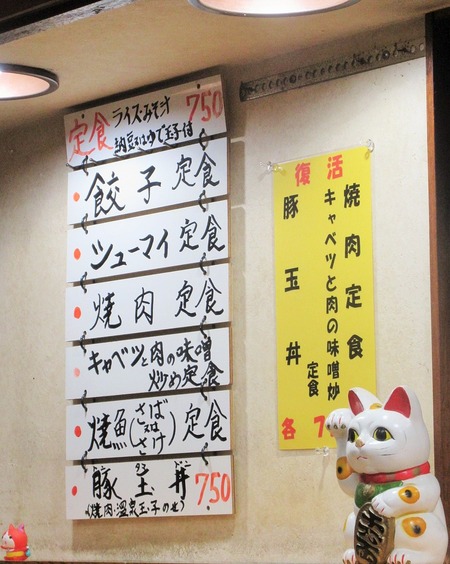 定食 ライス・みそ汁 750
納豆又はゆで玉子付
餃子 定食
シューマイ定食
焼肉 定食
キャベツと肉の味噌
炒め定食
焼魚(さば さけ)定食
豚玉丼 750
(焼肉・温泉玉子のせ)
復活
焼肉定食
キャベツと肉の味噌炒
定食
豚玉丼
各7